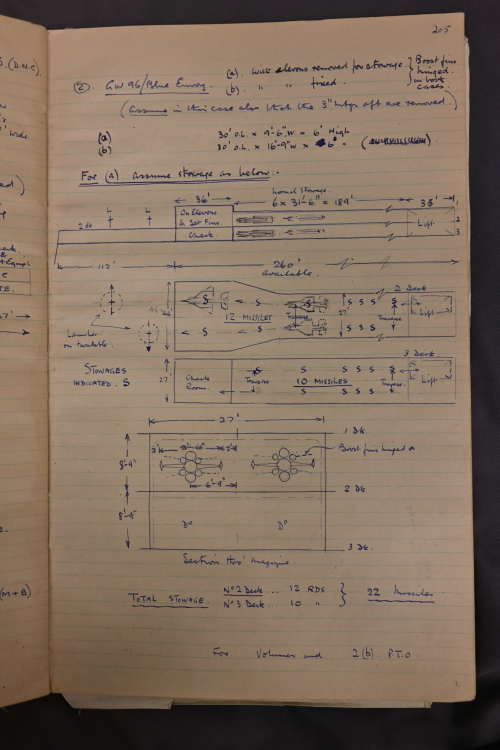 205
(2). GW 96/Blue Envoy. (a). With elevons removed for stowage. } Boost fins
(b). " " fixed. } hinged in both cases.
(Assume in this case also that the 3" wings aft are removed.)
(a) 30' O.L. x 9'-6" W. x 6' High
(b) 30' O.L. x 16'-9" W x 6' "
For (a) assume stowage as below.
normal stowage.
36' 6 x 31'-6" = 189' 35'
2 dk L L On Elevons & Set Fins. Lift 1 2
Check 3
112' 260' available.
2 Deck
S S S S S S S
12 MISSILES Traverse 27' Traverse Lift
S S S S S S
Launcher on turntable.
3 Deck
STOWAGES INDICATED. S
27' Check Room. S S S S S S
Traverse 10 MISSILES Traverse Lift
S S S S
27'
1 Dk
8'-9" Boost fins hinged
6'-9"
2 Dk
8'-9" Do Do
3 Dk.
Section thro' Magazine.
TOTAL STOWAGE No 2 Deck... 12 RDS } 22 Missiles
No 3 Deck... 10 " }
For Volumes and 2(b). P.T.O.
(D.N.C).
wide
TE.
(M+B)